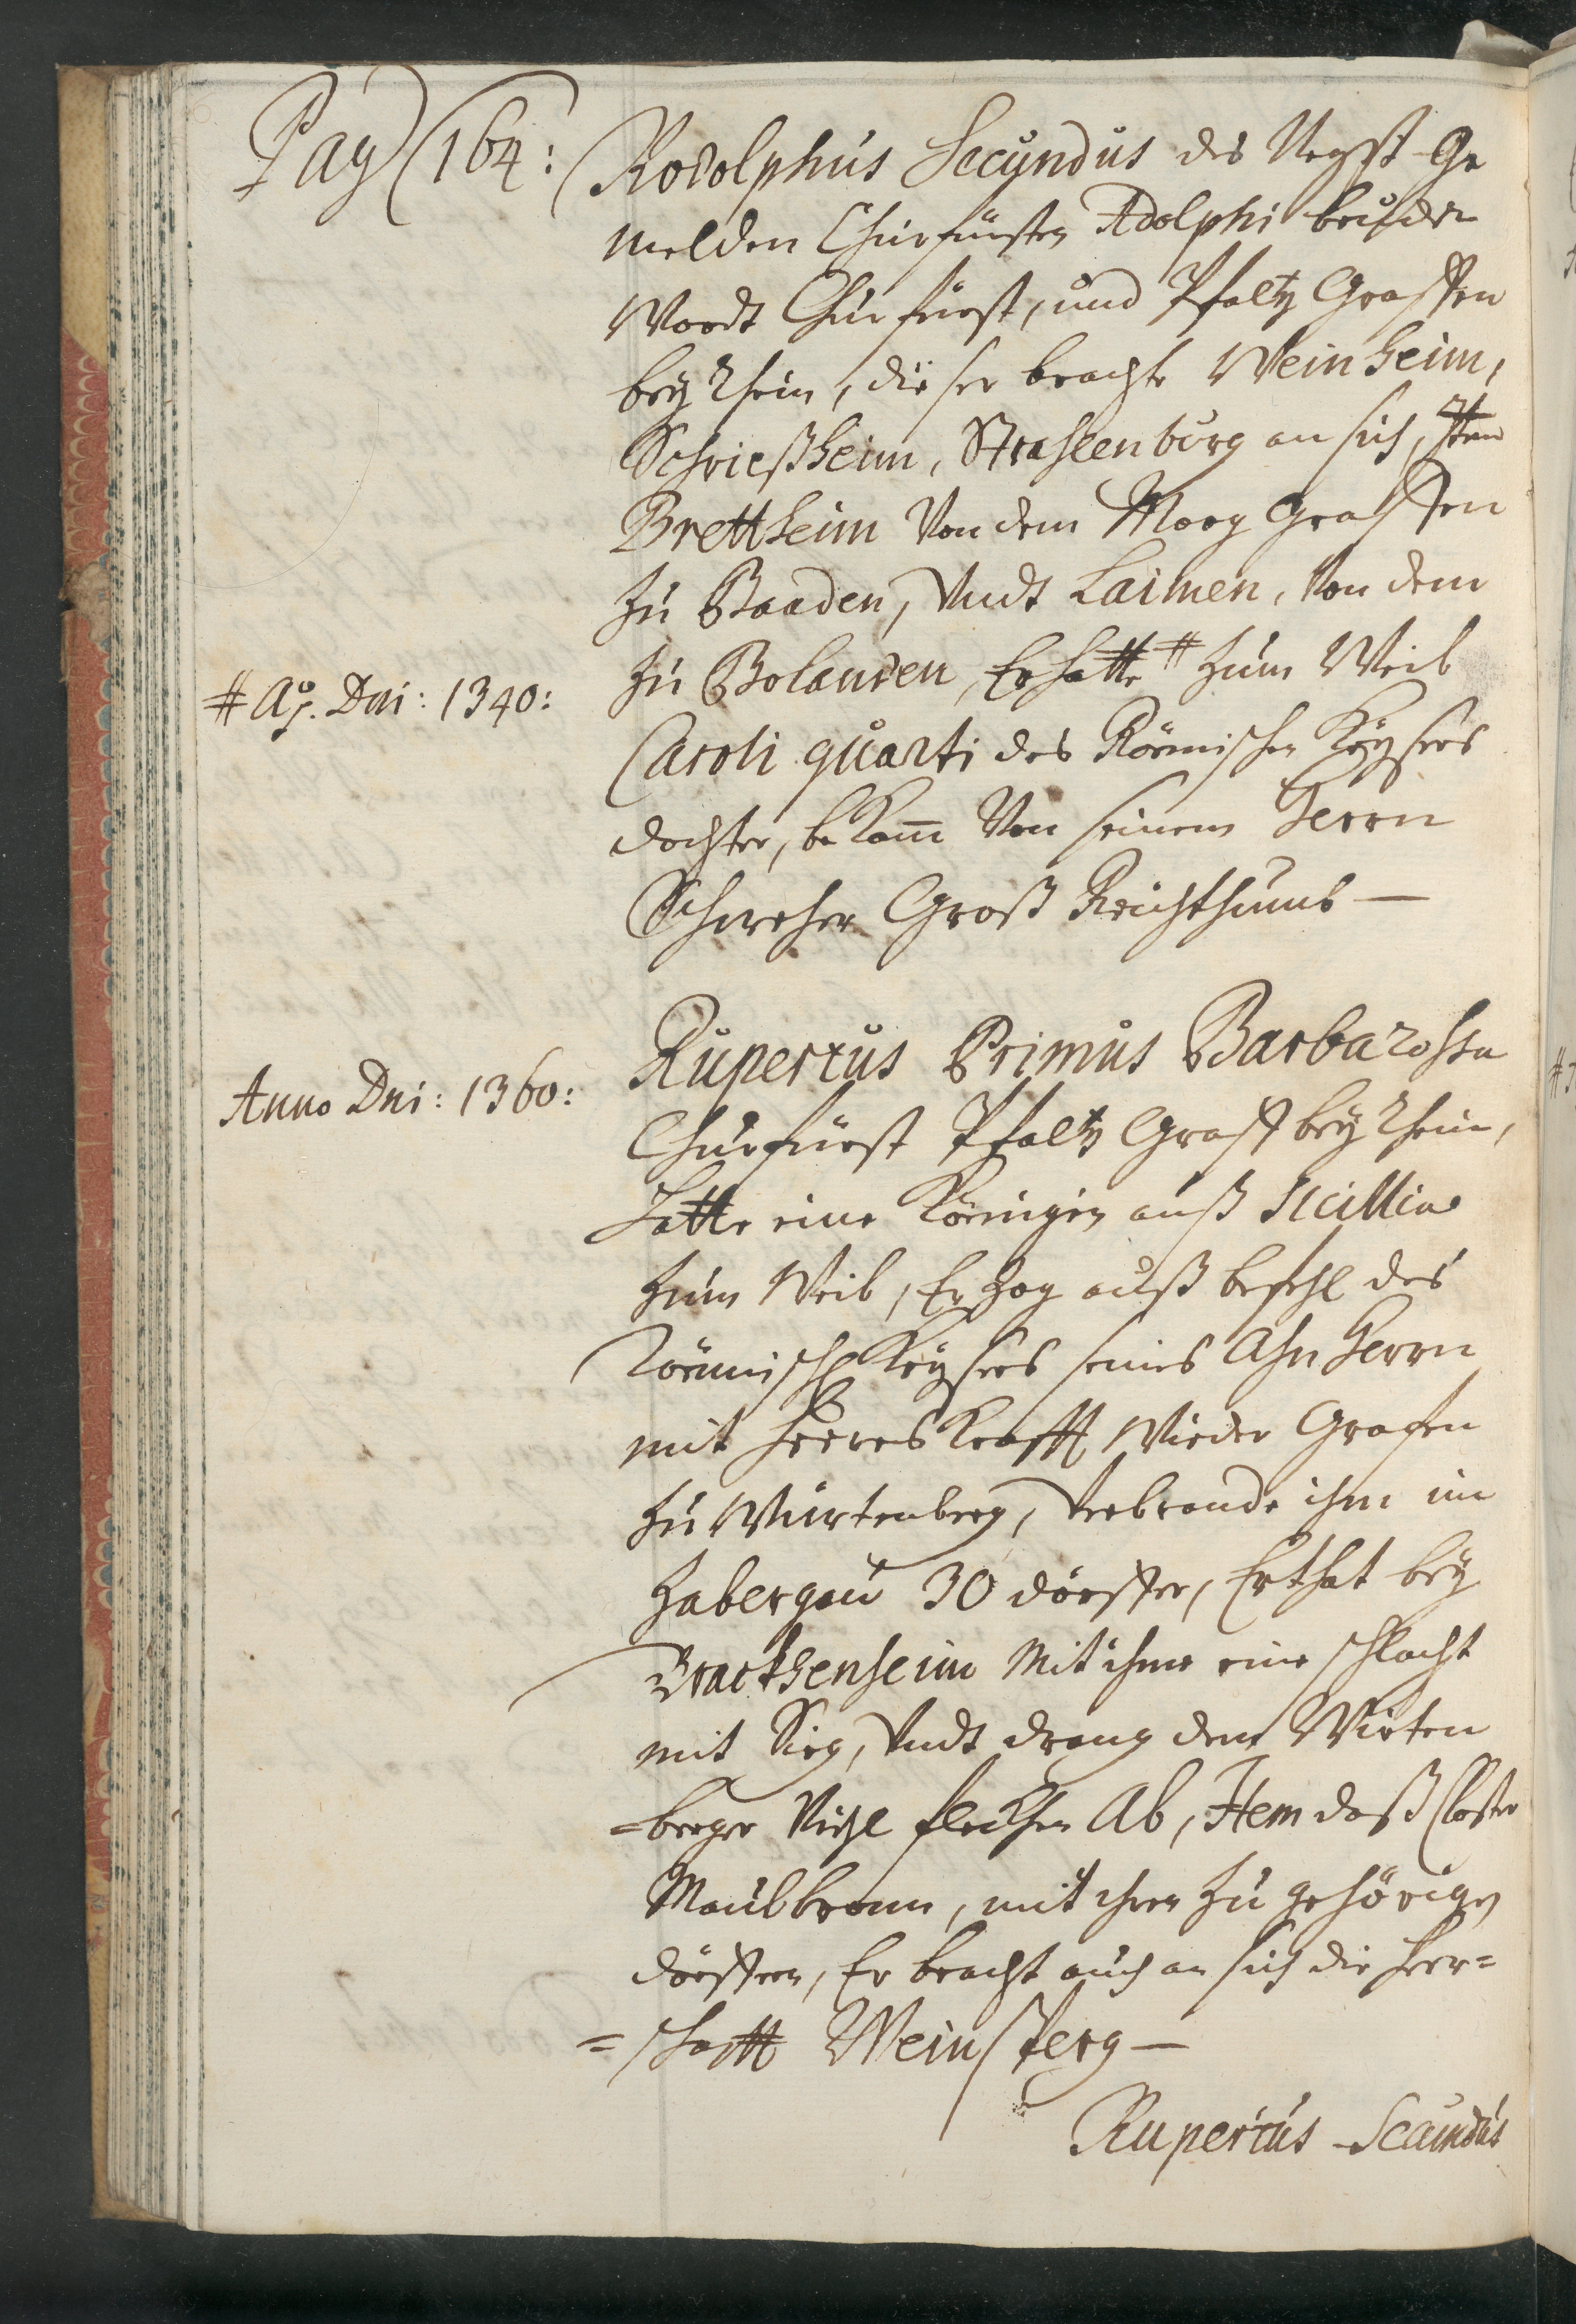 Pag 164:
Rodolphus Secundus des Negst Ge
melden Churfürsten Adolphi bruder
Wardt Churfürst, und Pfaltz Graffen
beÿ Rhein, dieser brachte Weinheim,
Schrießheim, Strahlenburg an sich, Item
Brettheim Von dem Marg Graffen
zu Baaden, Vndt Laimen, Von dem
zu Bolanden, Er hatte # zum Weib
# Aō. Dni: 1340:
Caroli quarti des Römischen Keÿsers
dochter, bekam̄ Von seinem Herrn
Schweher Groß Reichthumb —
Rupertus Primus Barbarossa
Anno Dni: 1360:
Churfürst Pfaltz Graff beÿ Rhein,
Hatte eine Königin auß Sicillia
zum Weib, Er Zog auß befehl des
Römisch Keÿsers seines Ahn Herrn
mit Heeres Krafft Wieder Grafen
zu Würtenberg, Verbrande ihm im
Zabergau 30 dörffer, Er that beÿ
Brackhenheim Mit ihme eine schlacht
mit Sieg, Vndt drang dem Wirten
=berger Viehl fleckhen Ab, Item daß Closter
Maulbronn, mit ihren zu gehörigen
dörffern, Er bracht auch an sich die Herr=
=schafft Weinsperg —
Rupertus Secundus